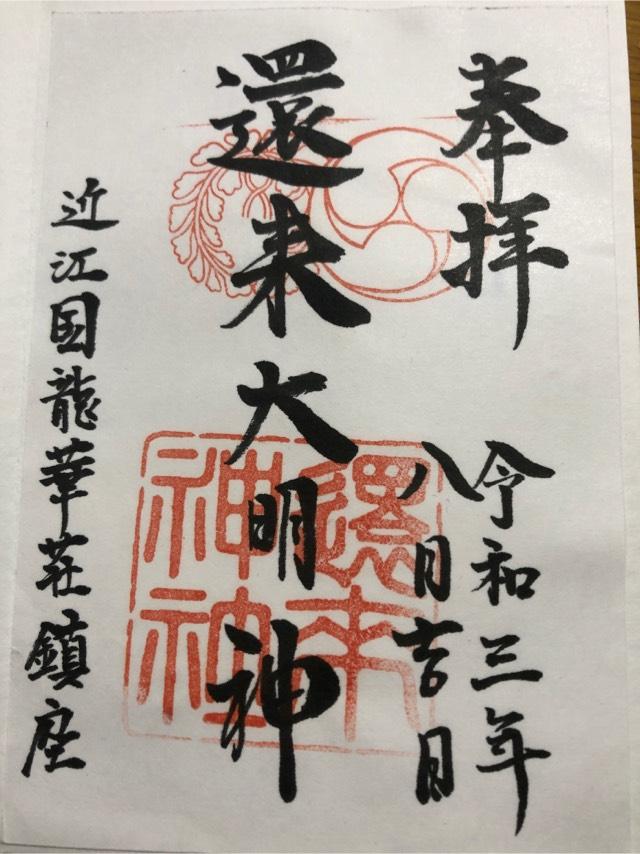 奉拝
令和三年
八月吉日
還来大明神
還来神社
近江国龍華荘鎮座